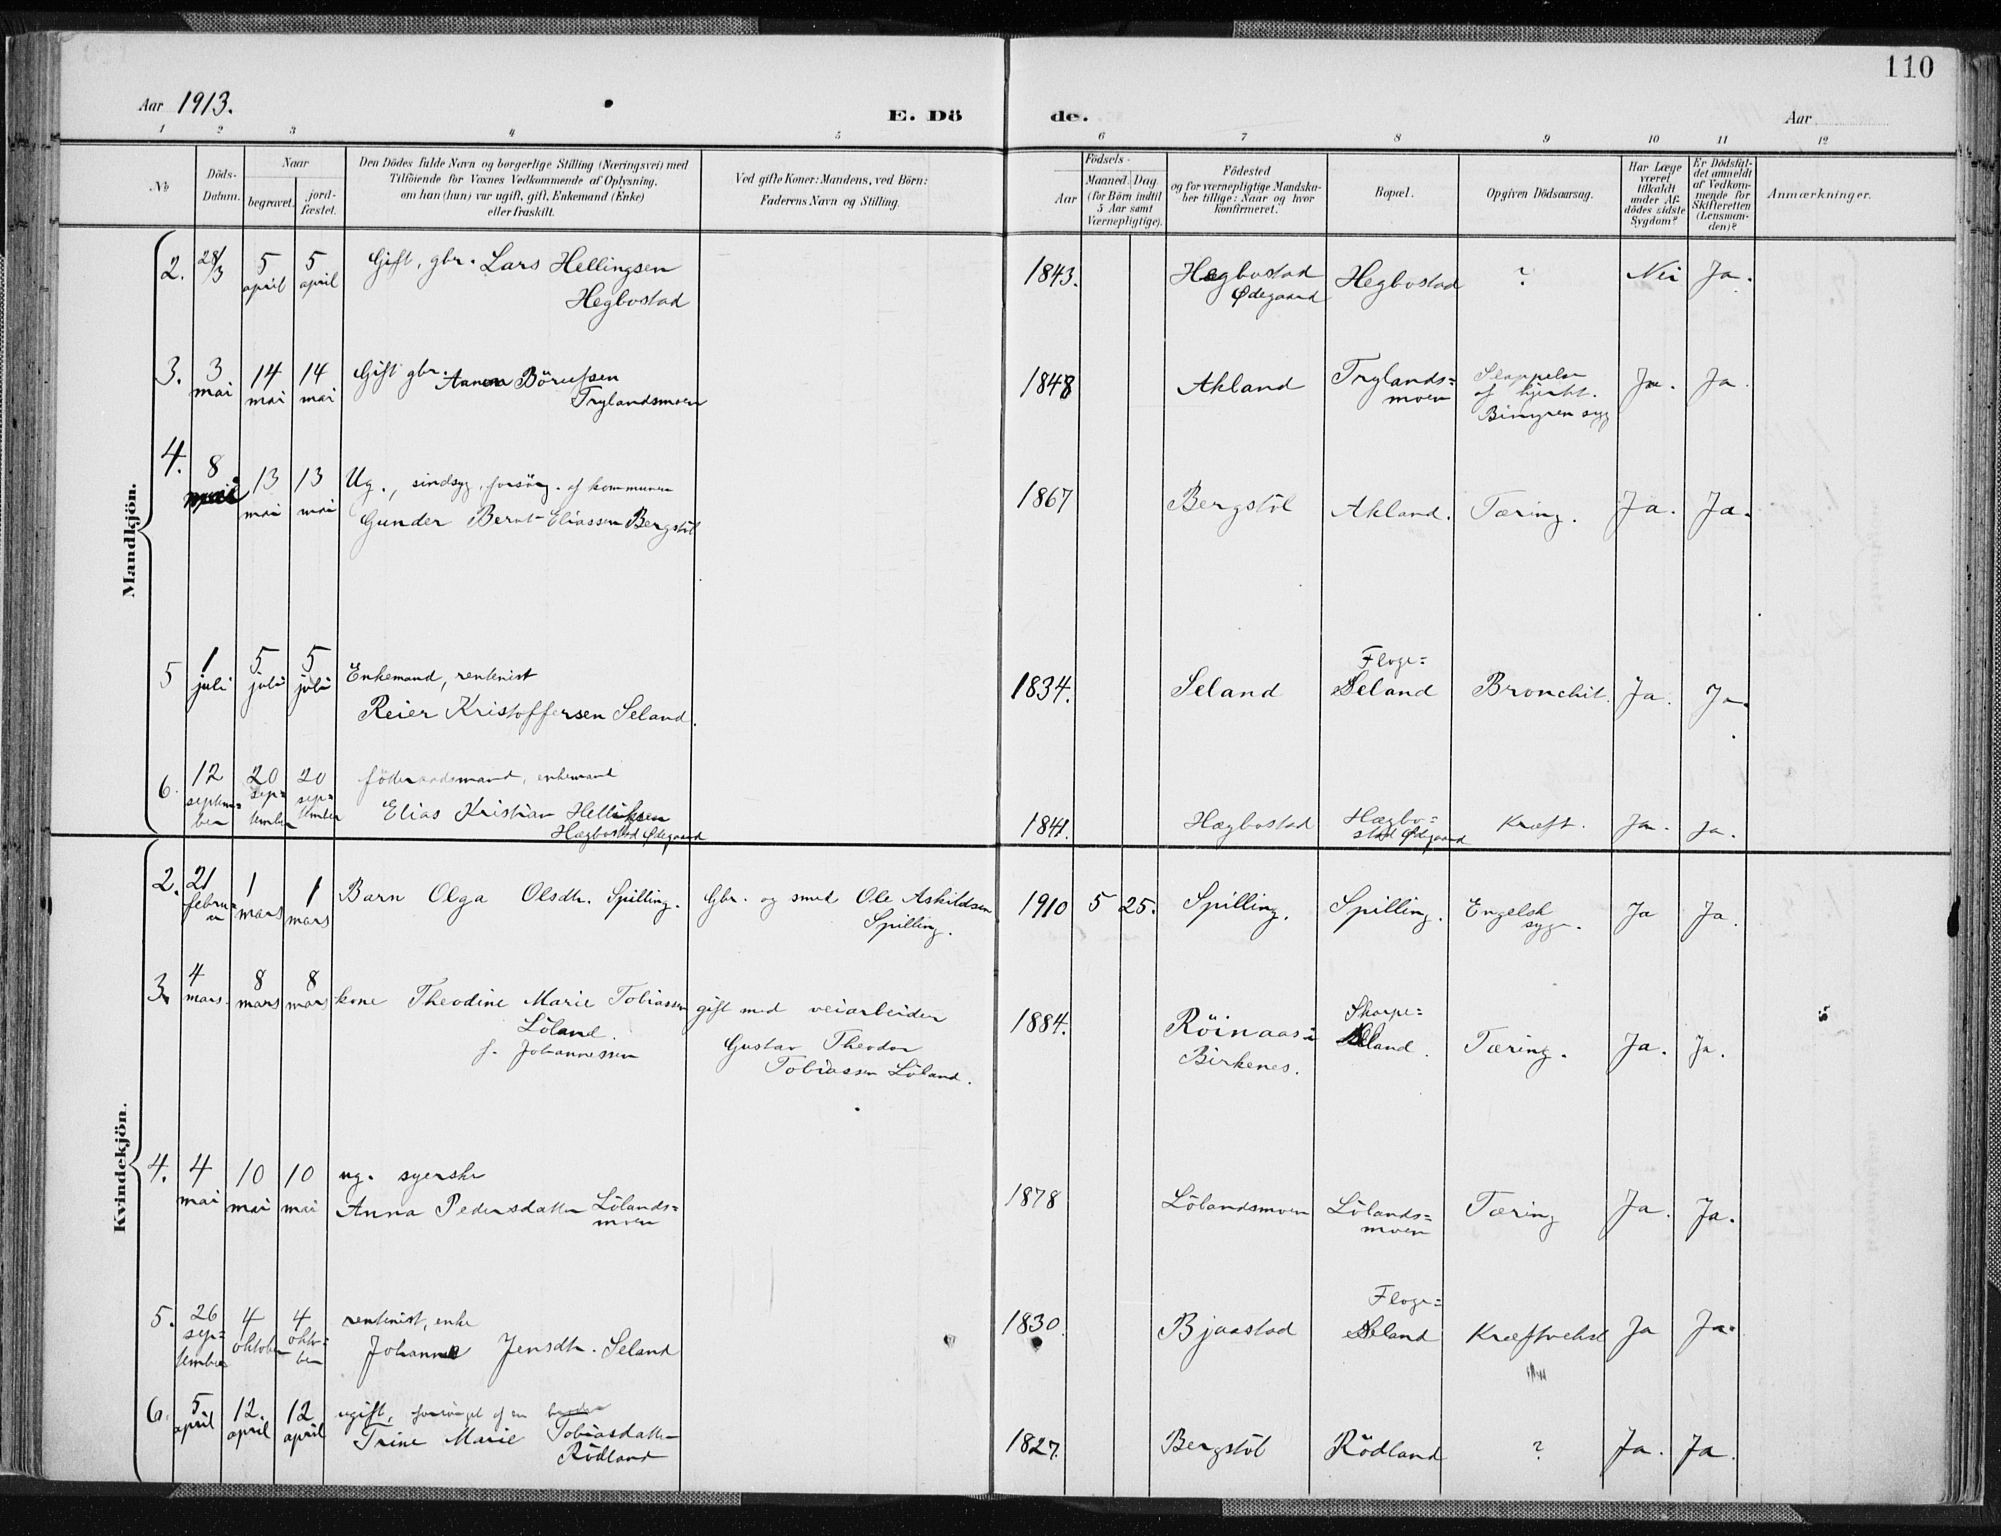 110
Aar 1913.
E. Döde.
Aar
1 2 3 4 5 6 7 8 9 10 11 12
No
Döds-Datum.
Naar
begravet.
jord-fæstet.
Den Dödes fulde Navn og borgerlige Stilling (Næringsvei) med
Tilföiende for Voxnes Vedkommende af Oplysning,
om han (hun) var ugift, gift, Enkemand (Enke)
eller fraskilt.
Ved gifte Koner: Mandens, ved Börn:
Faderens Navn og Stilling.
Födsels-
Aar
Maaned.
Dag
(for Börn indtil
5 Aar samt
Værnepligtige).
Födested
og for værnepligtige Mandska-
ber tillige: Naar og hvor
konfirmeret.
Bopæl.
Opgiven Dödsaarsag.
Har Læge
været
tilkaldt
under Af-
dödes sidste
Sygdom?
Er Dödsfal-
det anmeldt
af Vedkom-
mende for
Skifteretten
(Lensman-
den)?
Anmærkninger.
Mandkjön.
2. 28/3 5 april 5 april Gift, gbr. Lars Hellingsen
Hegbostad
1843. Hægbostad
Ødegaard
Hegbostad ? Nei Ja.
3. 3 mai 14 mai 14 mai Gift gbr.
Trylandsmoen
1848 Akland Trylands=
moen
af hjertet.
Ja. Ja.
4. 8 mai 13 mai 13 mai Ug., sindsyg, forsörg. af kommunen
Gunder Bernt Eliassen Bergstöl
1867 Bergstöl Akland. Tæring. Ja. Ja.
5 1 juli 5 juli 5 juli Enkemand, rentenist
Reier Kristoffersen Seland.
1834. Seland Floge=
Seland Bronchit. Ja. Ja.
6. 12 septem=
ber 20 sep=
tember 20 sep=
tember föderaadsmand, enkemand
Elias Kristian
Hægbostad Ødegaard
1841. Hægbostad Hægbo=
stad Ødegaard Kræft. Ja. Ja.
Kvindekjön.
2. 21 februa
r 1 mars 1 mars Barn Olga Olsdtr. Spilling. Gbr. og smed Ole Askildsen
Spilling.
1910 5 25. Spilling. Spilling. Engelsk
syge. Ja Ja.
3. 4 mars. 8 mars 8 mars kone Theodine Marie Tobiassen
Löland.
f. Johannessen
gift med veiarbeider
Gustav Theodor
Tobiassen Löland.
1884. Röinaas i
Birkenes.
Skarpe=
Tæring. Ja. Ja.
4. 4 mai 10 mai 10 mai ug. syerske
Anna Pedersdatter Lölands=
moen
1878 Lölandsmoen Lölands=
moen Tæring Ja. Ja.
5. 26 sep=
tember 4 oktober 4 okto=
ber rentenist, enke
Johanne Jensdtr. Seland
1830. Bjaastad Floge=
Seland Kræftvekst Ja Ja.
6. 5 april 12. april 12 april ugift, forsörget af en broder
Trine Marie Tobiasdatter
Rödland
1827. Bergstöl Rödland ? Ja. Ja.